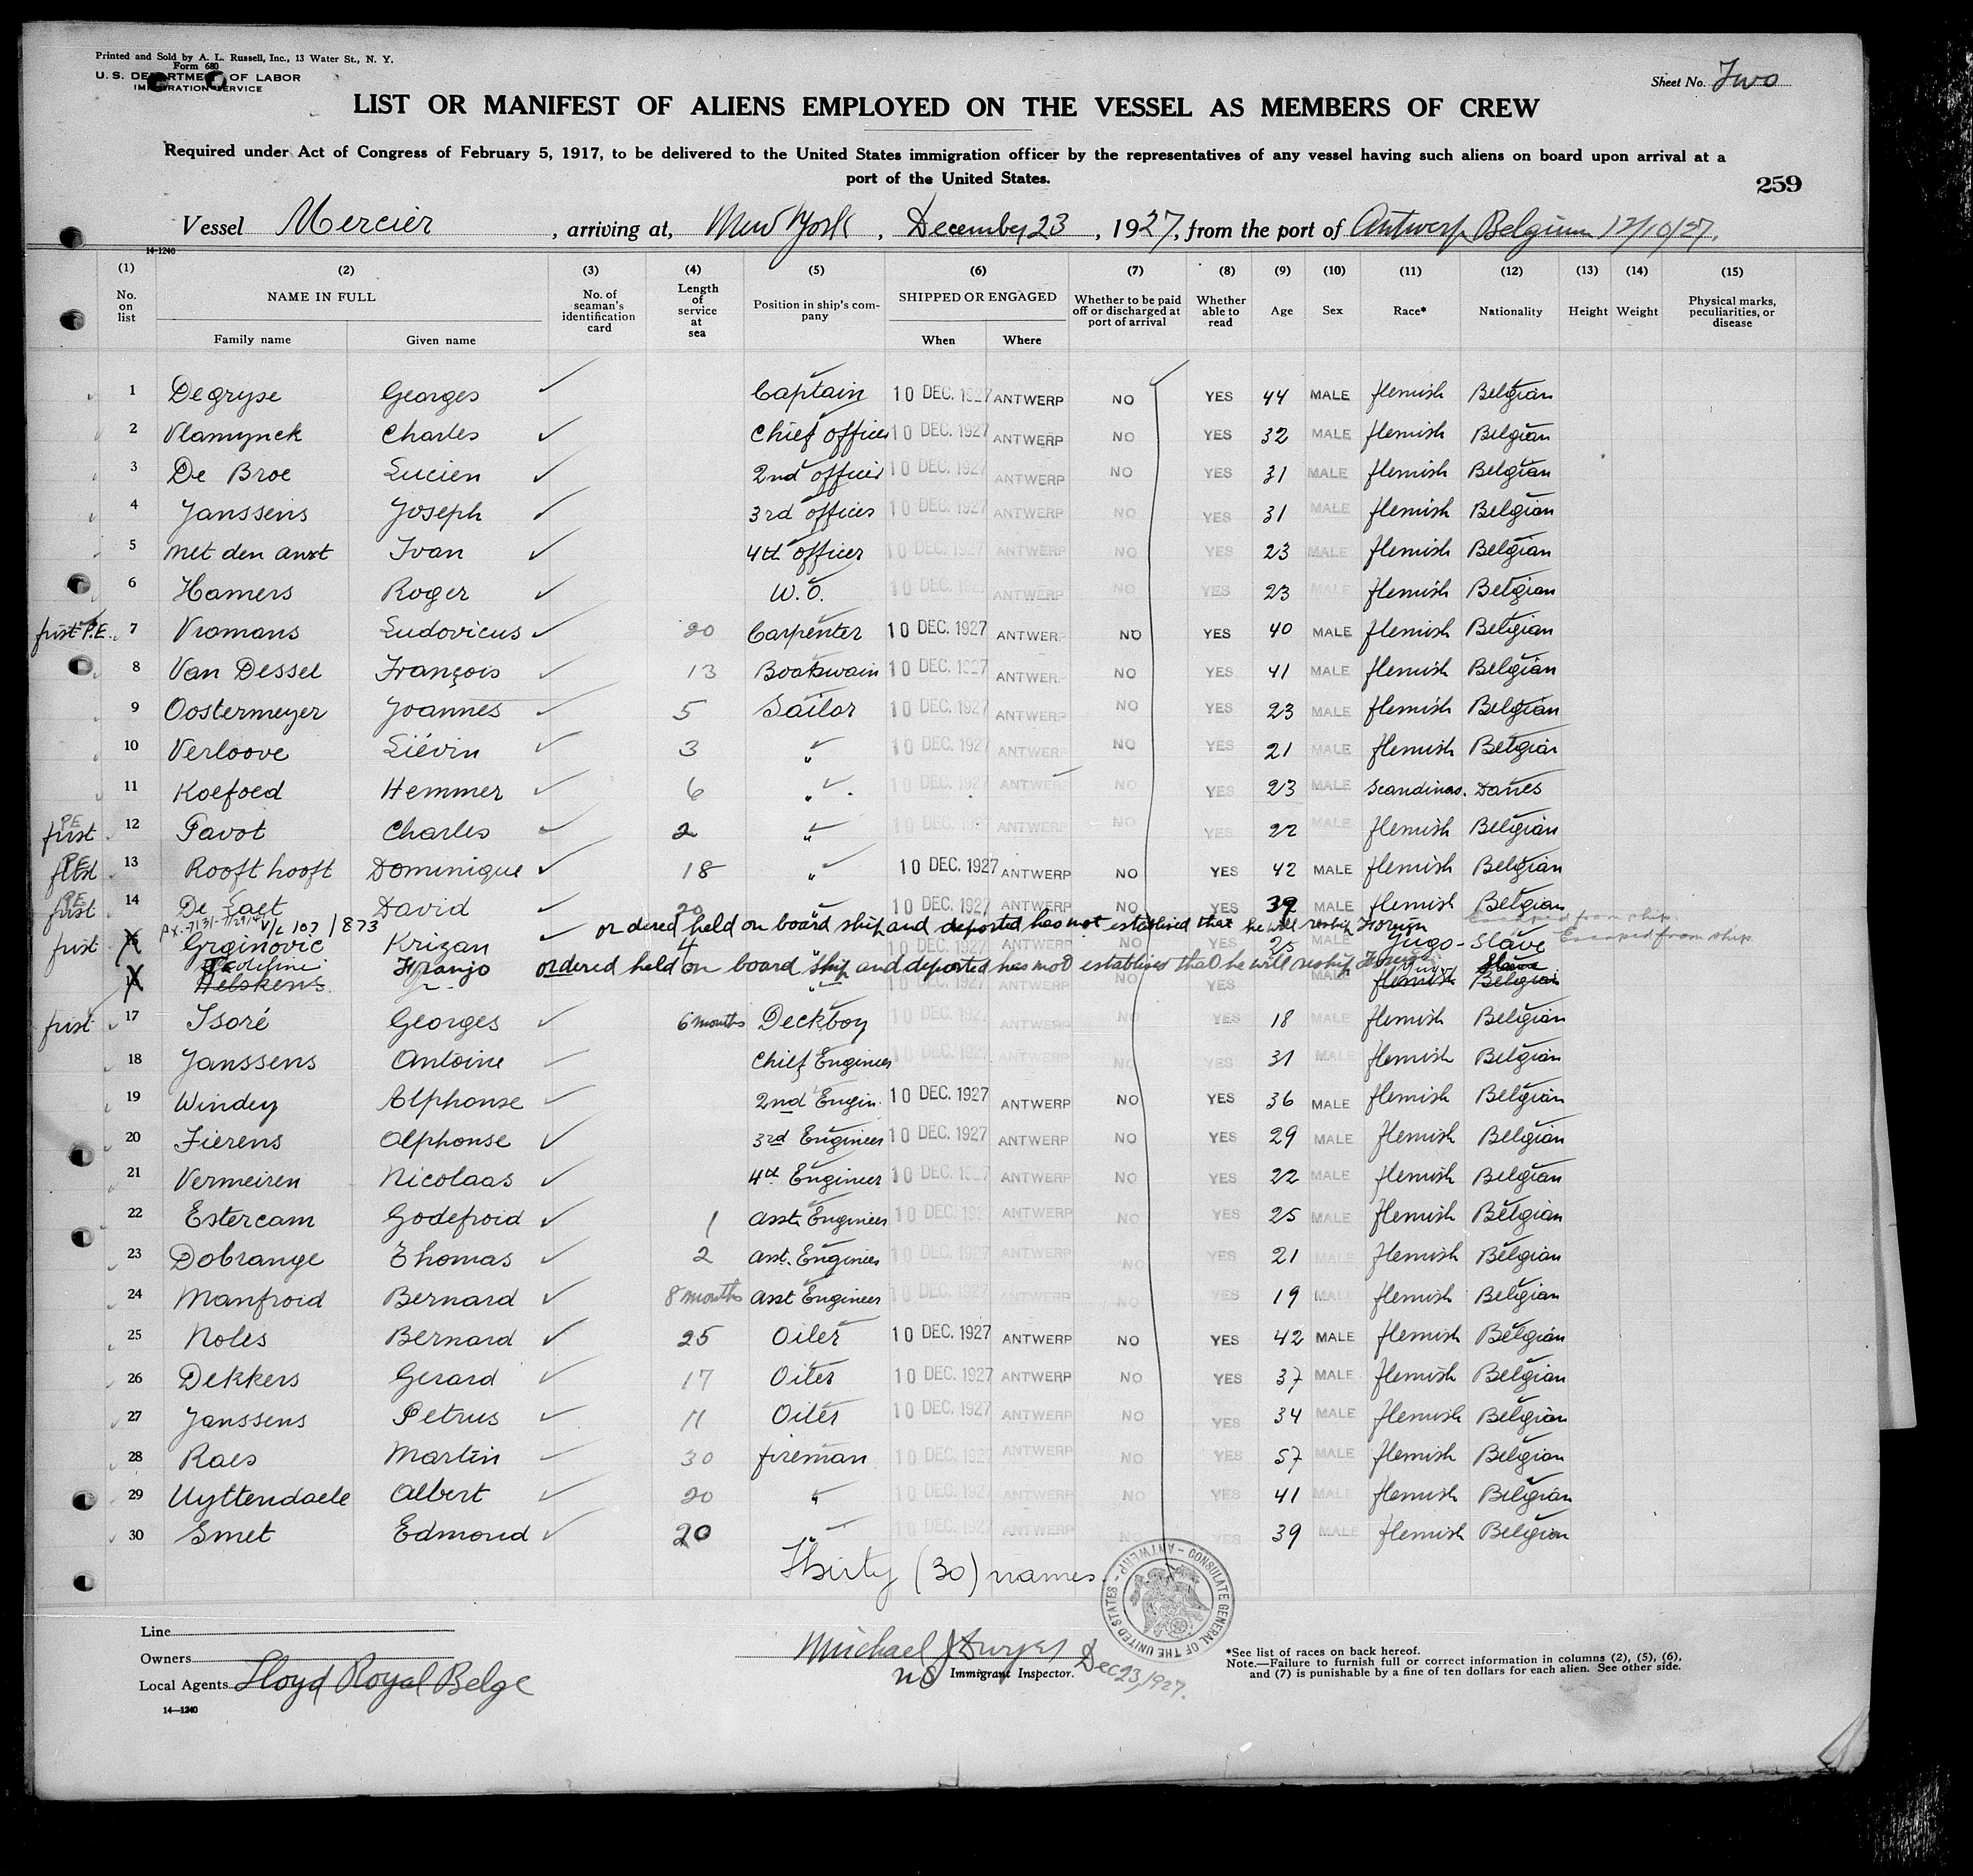 Printed and Sold by A. L. Russell, Inc., 13 Water St., N. Y.
Form 680
U. S. DEPARTMENT OF LABOR
IMMIGRATION SERVICE
Sheet No. Two
LIST OR MANIFEST OF ALIENS EMPLOYED ON THE VESSEL AS MEMBERS OF CREW
Required under Act of Congress of February 5, 1917, to be delivered to the United States immigration officer by the representatives of any vessel having such aliens on board upon arrival at a
port of the United States.
259
Vessel Mercier, arriving at, New York, December 23, 1927, from the port of Antwerp Belgium 12/10/27.
14-1240
(1) (2) (3) (4) (5) (6) (7) (8) (9) (10) (11) (12) (13) (14) (15)
No. on list NAME IN FULL No. of seaman's identification card Length of service at sea Position in ship's company SHIPPED OR ENGAGED Whether to be paid off or discharged at port of arrival Whether able to read Age Sex Race* Nationality Height Weight Physical marks, peculiarities, or disease
Family name Given name When Where
1 Degryse Georges Captain 10 DEC. 1927 ANTWERP NO YES 44 MALE flemish Belgian
2 Vlamynck Charles Chief officer 10 DEC. 1927 ANTWERP NO YES 32 MALE flemish Belgian
3 De Broe Lucien 2nd officer 10 DEC. 1927 ANTWERP NO YES 31 MALE flemish Belgian
4 Janssens Joseph 3rd officer 10 DEC. 1927 ANTWERP NO YES 31 MALE flemish Belgian
5 Met den anxt Ivan 4th officer 10 DEC. 1927 ANTWERP NO YES 23 MALE flemish Belgian
6 Hamers Roger W.O. 10 DEC. 1927 ANTWERP NO YES 23 MALE flemish Belgian
first P.E. 7 Vromans Ludovicus 20 Carpenter 10 DEC. 1927 ANTWERP NO YES 40 MALE flemish Belgian
8 Van Dessel François 13 Boatswain 10 DEC. 1927 ANTWERP NO YES 41 MALE flemish Belgian
9 Oostermeyer Joannes 5 Sailor 10 DEC. 1927 ANTWERP NO YES 23 MALE flemish Belgian
10 Verloove Liévin 3 " 10 DEC. 1927 ANTWERP NO YES 21 MALE flemish Belgian
11 Koefoed Hemmer 6 " 10 DEC. 1927 ANTWERP NO YES 23 MALE Scandinav. Danes
first PE 12 Pavot Charles 2 " 10 DEC. 1927 ANTWERP NO YES 22 MALE flemish Belgian
first PE 13 Rooft hooft Dominique 18 " 10 DEC. 1927 ANTWERP NO YES 42 MALE flemish Belgian
first PE 14 De Laet David 20 " 10 DEC. 1927 ANTWERP NO YES 39 MALE flemish Belgian
ordered held on board ship and deported has not establised that he will reship Foreign Escaped from ship
first 15 Grginovic Krizan 4 " 10 DEC. 1927 ANTWERP NO YES 25 MALE Jugo-Slave Escaped from ship
Franjo ordered held on board ship and deported has not establised that he will reship Foreign
Helskens " 10 DEC. 1927 ANTWERP NO YES MALE flemish Belgian
first 17 Isoré Georges 6 months Deckboy 10 DEC. 1927 ANTWERP NO YES 18 MALE flemish Belgian
18 Janssens Antoine Chief Engineer 10 DEC. 1927 ANTWERP NO YES 31 MALE flemish Belgian
19 Windey Alphonse 2nd Engin. 10 DEC. 1927 ANTWERP NO YES 36 MALE flemish Belgian
20 Fierens Alphonse 3rd Engineer 10 DEC. 1927 ANTWERP NO YES 29 MALE flemish Belgian
21 Vermeiren Nicolaas 4th Engineer 10 DEC. 1927 ANTWERP NO YES 22 MALE flemish Belgian
22 Estercam Godefroid 1 Asst. Engineer 10 DEC. 1927 ANTWERP NO YES 25 MALE flemish Belgian
23 Dobrange Thomas 2 Asst. Engineer 10 DEC. 1927 ANTWERP NO YES 21 MALE flemish Belgian
24 Manfroid Bernard 8 months Asst Engineer 10 DEC. 1927 ANTWERP NO YES 19 MALE flemish Belgian
25 Nolis Bernard 25 Oiler 10 DEC. 1927 ANTWERP NO YES 42 MALE flemish Belgian
26 Dekkers Gerard 17 Oiler 10 DEC. 1927 ANTWERP NO YES 37 MALE flemish Belgian
27 Janssens Petrus 11 Oiler 10 DEC. 1927 ANTWERP NO YES 34 MALE flemish Belgian
28 Raes Martin 30 fireman 10 DEC. 1927 ANTWERP NO YES 57 MALE flemish Belgian
29 Uyttendaele Albert 20 " 10 DEC. 1927 ANTWERP NO YES 41 MALE flemish Belgian
30 Smet Edmond 20 " 10 DEC. 1927 ANTWERP NO YES 39 MALE flemish Belgian
Thirty (30) names.
CONSULATE GENERAL OF THE UNITED STATES - ANTWERP -
Line
Owners
Local Agents Lloyd Royal Belge
Michael J Dwyer Dec 23, 1927.
Immigrant Inspector.
*See list of races on back hereof.
Note.—Failure to furnish full or correct information in columns (2), (5), (6),
and (7) is punishable by a fine of ten dollars for each alien. See other side.
14—1240